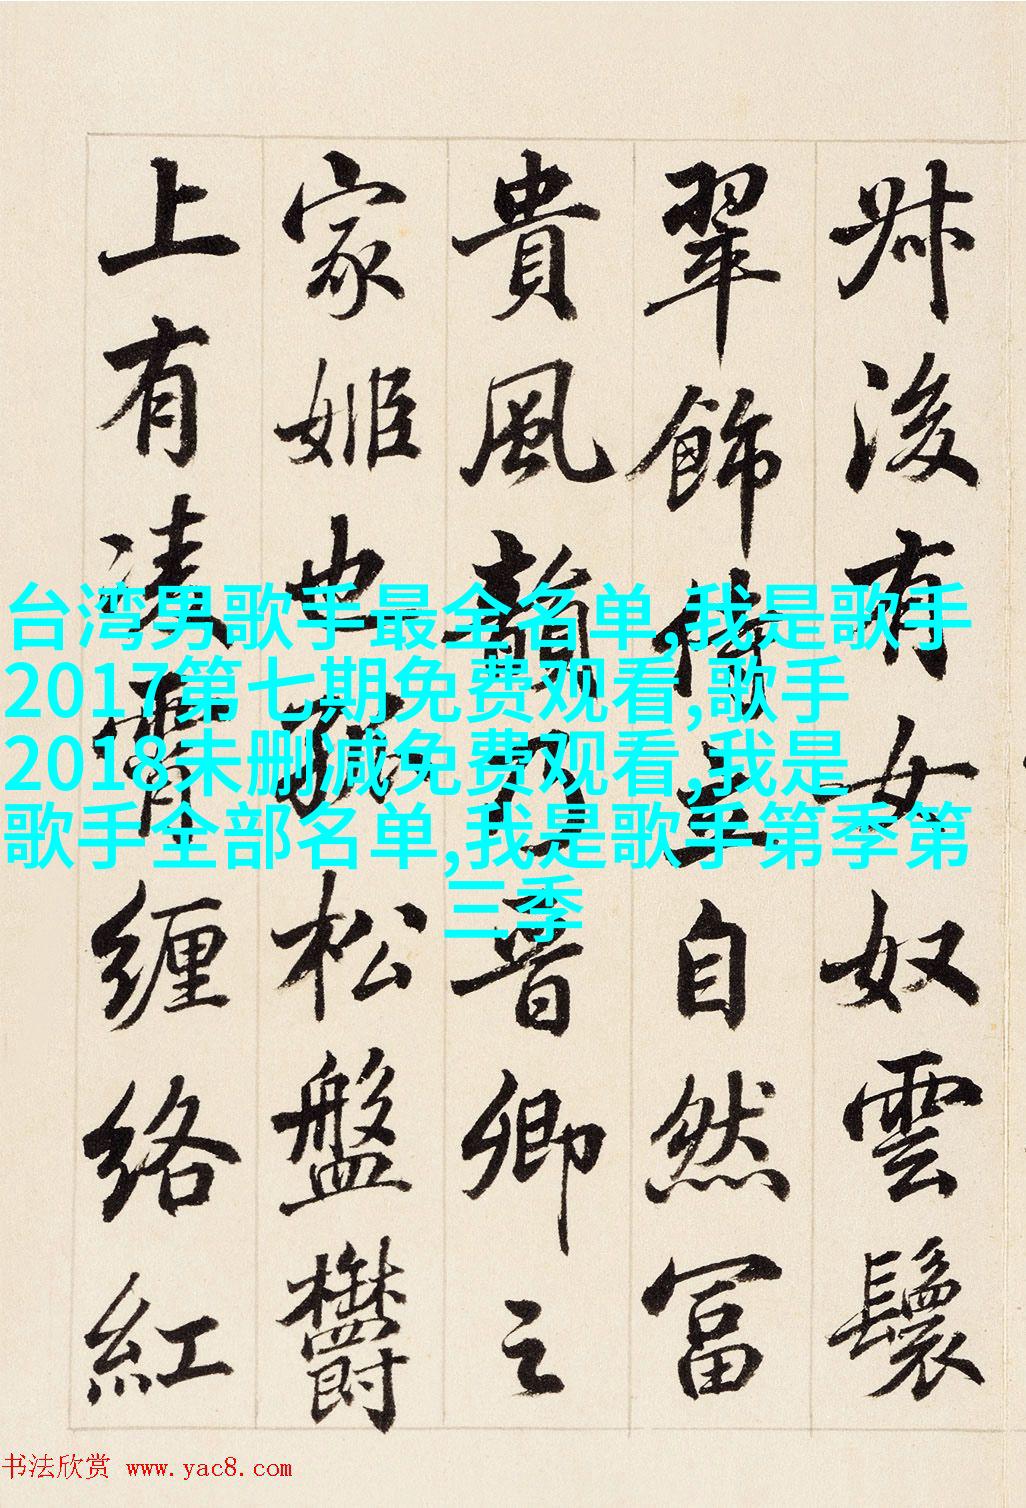 叔後有女奴雲鬟
翠飾立自然富
貴風韻乃晉卿之
家姬也孤松盤鬱
上有凌霄纏络紅
台湾男歌手最全名单,我是歌手
2017第七期免费观看,歌手
2018未删减免费观看,我是
歌手全部名单,我是歌手第季第
三季
书法欣赏 www.yac8.com